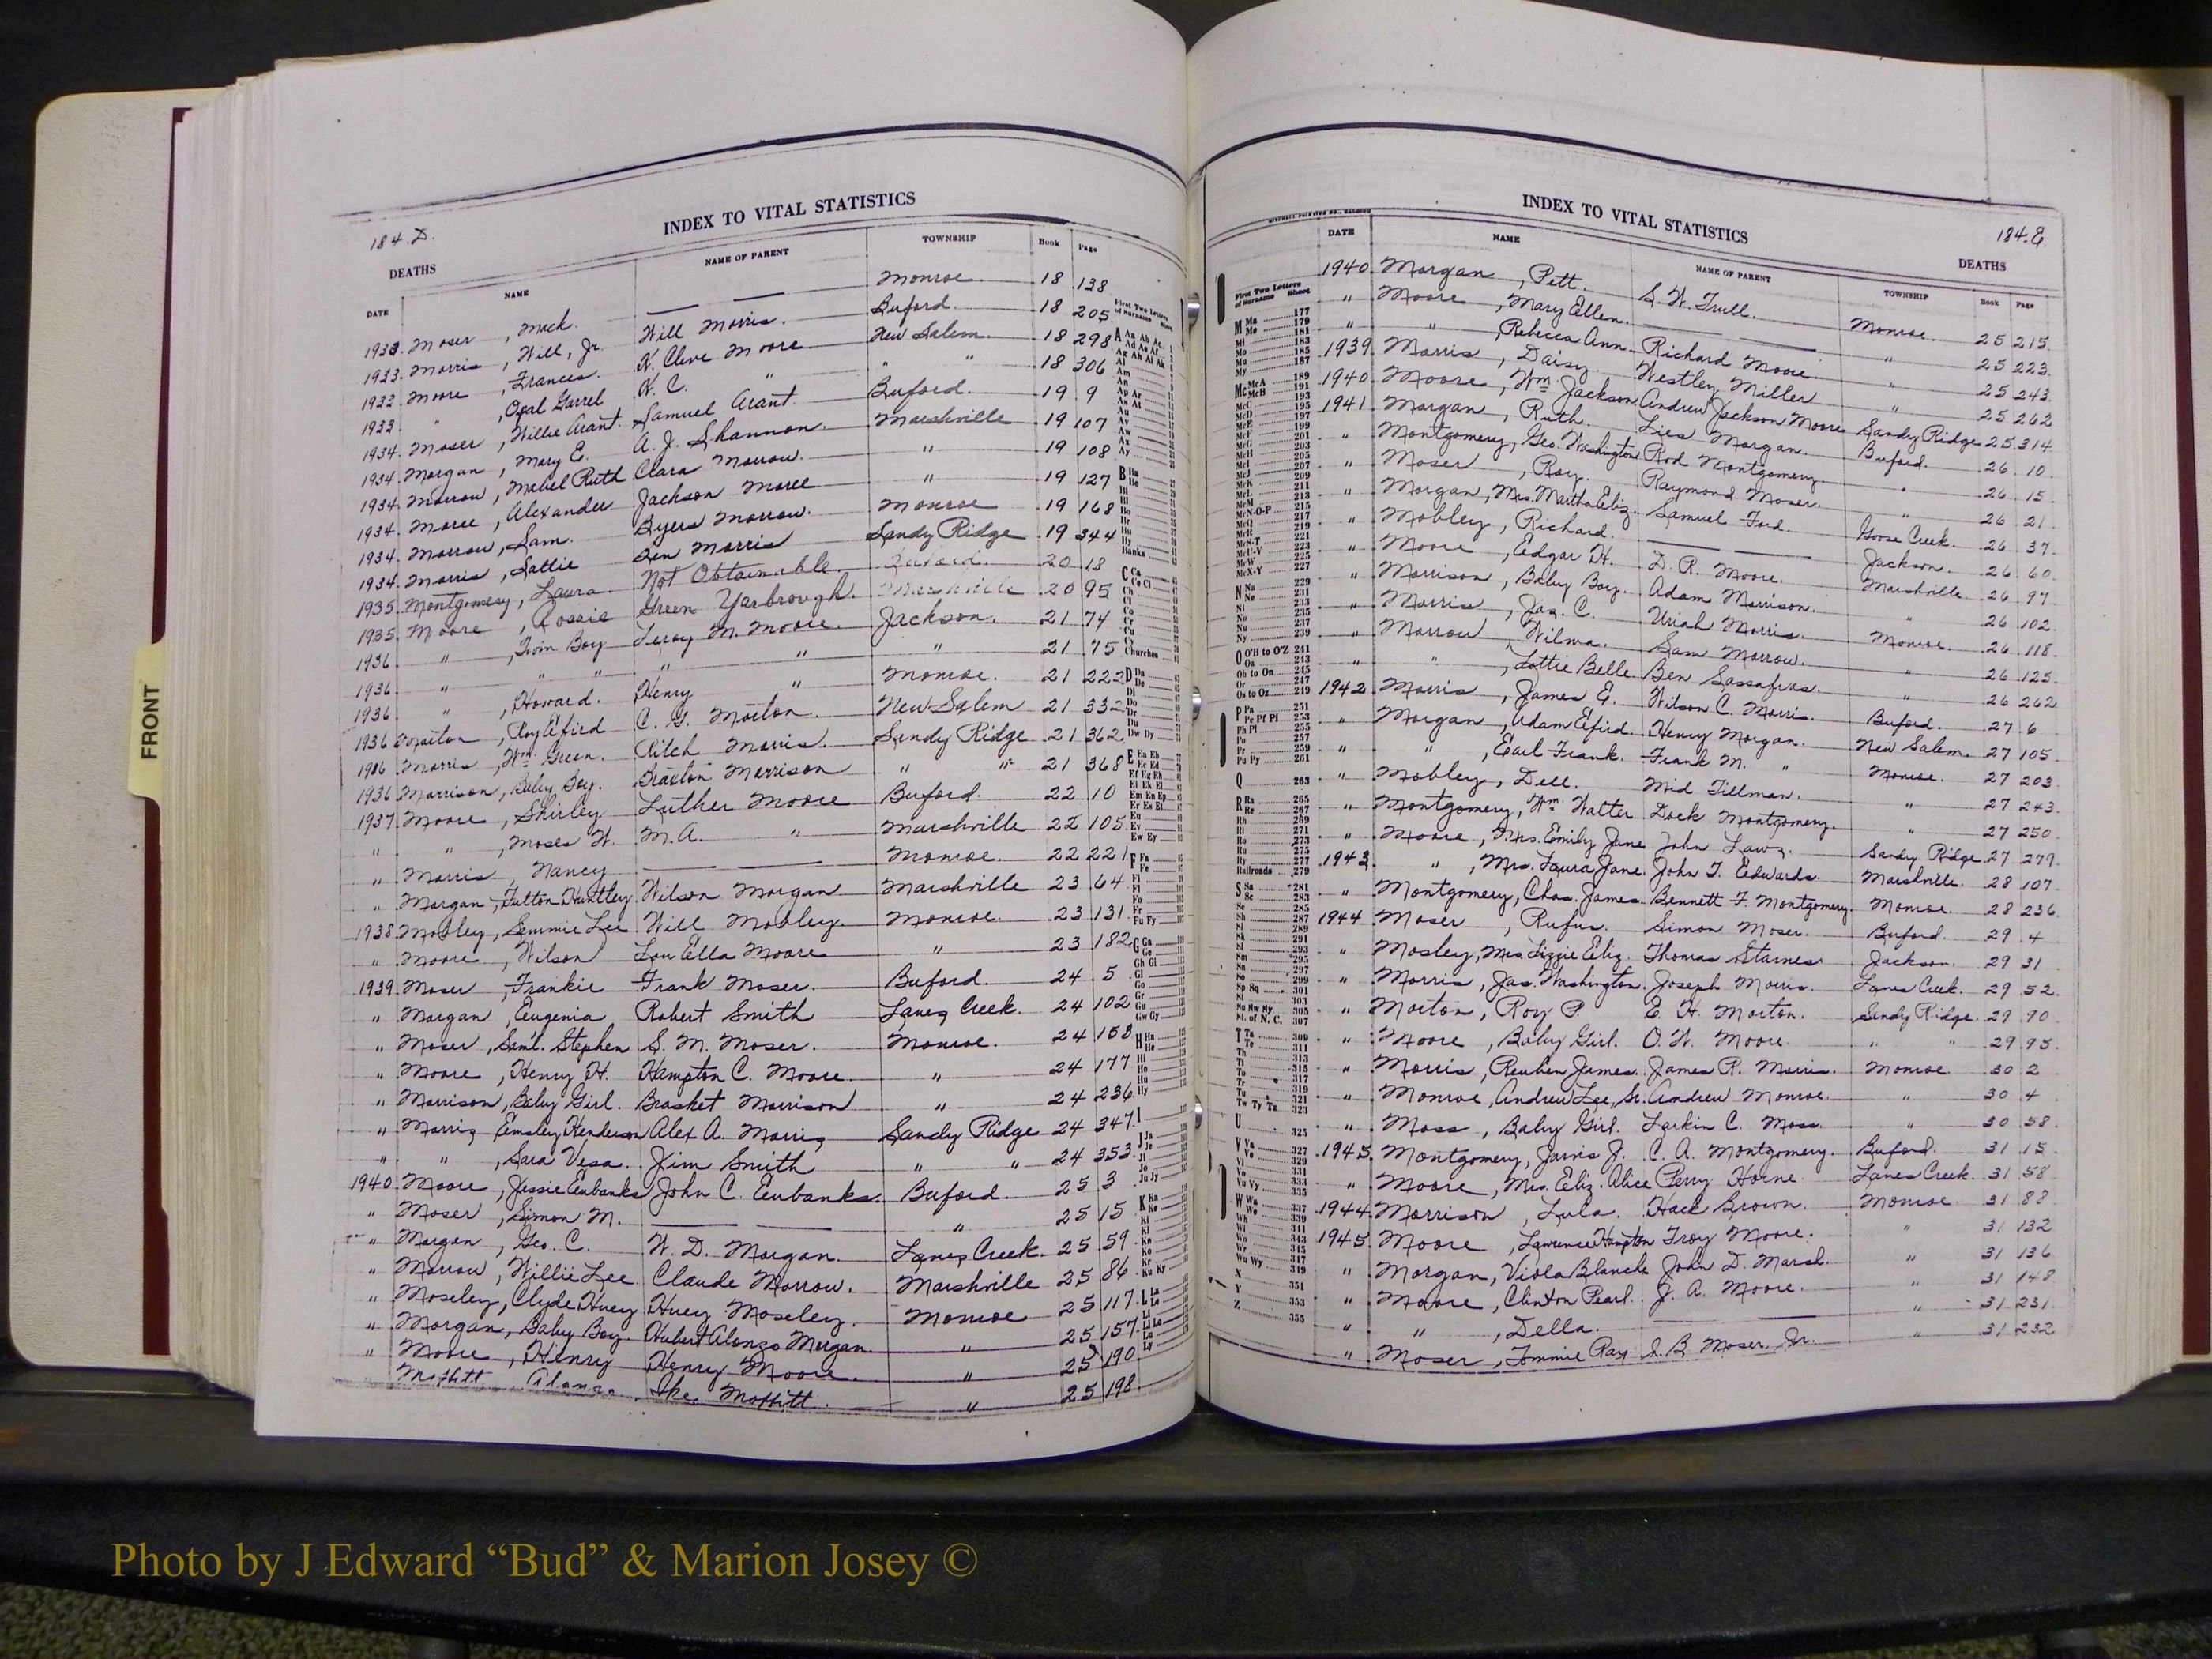 INDEX TO VITAL STATISTICS
184.D.
DEATHS
DATE NAME NAME OF PARENT TOWNSHIP Book Page
1933. Moser , Mack. Monroe. 18 138
1933. Morris , Will, Jr. Will Morris. Buford. 18 205
1933 Moore , Frances. K. Cleve Moore New Salem. 18 298
1933 " , Opal Garrel K. C. " " " 18 306
1934. Moser , Willie Arant. Samuel Arant. Buford. 19 9
1934. Morgan , Mary E. A. J. Shannon. Marshville 19 107
1934. Morrow, Mabel Ruth Clara Morrow. " 19 108
1934. Moree , Alexander Jackson Moree " 19 127
1934. Morrow, Sam. Byers Morrow. Monroe 19 168
1934. Morris , Lattie Len Morris Sandy Ridge 19 344
1935. Montgomery, Laura. Not Obtainable. Buford. 20 18
1935. Moore , Rossie Green Yarbrough. Marshville 20 95
1936 " , Twin Boy Leroy M. Moore. Jackson. 21 74
1936. " " " " " " 21 75
1936 " , Howard. Henry " Monroe. 21 222
1936 Morton , Roy Efird C. G. Morton. New Salem 21 332
1936 Morris , Wm. Green. Ritch Morris. Sandy Ridge 21 362
1936 Morrison, Baby Boy. Braxton Morrison " " 21 368
1937. Moore , Shirley Luther Moore Buford. 22 10
" " , Moses W. M. A. " Marshville 22 105
" Morris , Nancy Monroe. 22 221
" Morgan , Fulton Huntley. Wilson Morgan Marshville 23 64
1938 Mobley, Semmie Lee Will Mobley. Monroe. 23 131
" Moore , Wilson Lou Ella Moore " 23 182
1939. Moser , Frankie Frank Moser. Buford. 24 5
" Morgan , Eugenia Robert Smith Lanes Creek. 24 102
" Moser , Saml. Stephen S. M. Moser. Monroe. 24 158
" Moore , Henry H. Hampton C. Moore. " 24 177
" Morrison, Baby Girl. Brasket Morrison " 24 236
" Morris Emsley Henderson Alex A. Morris Sandy Ridge 24 347
" " , Sara Vesa. Jim Smith " " 24 353
1940. Moore , Jessie Eubanks John C. Eubanks. Buford. 25 3
" Moser , Simon M. " 25 15
" Morgan , Geo. C. W. D. Morgan. Lanes Creek. 25 59
" Morrow, Willie Lee. Claude Morrow. Marshville 25 86
" Moseley, Clyde Huey Huey Moseley. Monroe 25 117
" Morgan, Baby Boy. Hubert Alonzo Morgan " 25 157
" Moore , Henry Henry Moore. " 25 190
Moffitt Alonza Ike Moffitt. " 25 198
INDEX TO VITAL STATISTICS
184.E.
DEATHS
DATE NAME NAME OF PARENT TOWNSHIP Book Page
1940. Morgan , Pett. S. W. Trull. Monroe. 25 215
" Moore , Mary Ellen. " 25 223
" " , Rebecca Ann. Richard Moore. " 25 243
1939 Morris , Daisy. Westley Miller " 25 262
1940 Moore , Wm. Jackson. Andrew Jackson Moore Sandy Ridge 25 314
1941 Morgan , Ruth. Morgan. Buford. 26 10
" Montgomery, Geo. Washington. Rod Montgomery. " 26 15
" Moser , Roy. Raymond Moser. " 26 21
" Morgan, Mrs. Martha Eliz. Samuel Ford. Goose Creek. 26 37
" Mobley, Richard. Jackson. 26 60
" Moore , Edgar H. D. R. Moore. Marshville. 26 97
" Morrison , Baby Boy. Adam Morrison. 26 102
" Morris , Jas. C. Uriah Morris. Monroe. 26 118
" Morrow , Wilma. Sam Morrow. " 26 125
" " , Lottie Belle. Ben Sassafras. " 26 262
1942 Morris , James E. Wilson C. Morris. Buford. 27 6
" Morgan , Adam Efird. Henry Morgan. New Salem. 27 105
" " , Earl Frank. Frank M. " Monroe. 27 203
" Mobley, Dell. Mid Tillman. " 27 243
" Montgomery, Wm. Walter Dock Montgomery. " 27 250
" Moore , Mrs. Emily Jane John Laws. Sandy Ridge 27 279
1943 " , Mrs. Laura Jane. John T. Edwards. Marshville. 28 107
" Montgomery, Chas. James. Bennett F. Montgomery. Monroe. 28 236
1944 Moser , Rufus. Simon Moser. Buford. 29 4
" Mosley, Mrs. Lizzie Eliz. Thomas Starnes Jackson. 29 31
" Morris , Jas. Washington. Joseph Morris. Lanes Creek. 29 52
" Morton , Roy P. E. H. Morton. Sandy Ridge. 29 70
" Moore , Baby Girl. O. W. Moore. " " 29 95
" Morris , Reuben James. James R. Morris. Monroe. 30 2
" Monroe , Andrew Lee, Sr. Andrew Monroe. " 30 4
" Moss , Baby Girl. Larkin C. Moss. " 30 58
1945. Montgomery, Jarvis J. C. A. Montgomery. Buford. 31 15
" Moore , Mrs. Eliz. Alice Perry Horne. Lanes Creek. 31 58
1944. Morrison , Lula. Hack Brown. Monroe 31 88
1945. Moore , Lawrence Hampton Troy Moore. " 31 132
" Morgan, Viola Blanche John D. Marsh. " 31 136
" Moore , Clinton Pearl. J. A. Moore. " 31 148
" " , Della. " 31 231
" Moser , Tommie Ray S. B. Moser, Jr. " 31 232
FRONT
Photo by J Edward “Bud” & Marion Josey ©